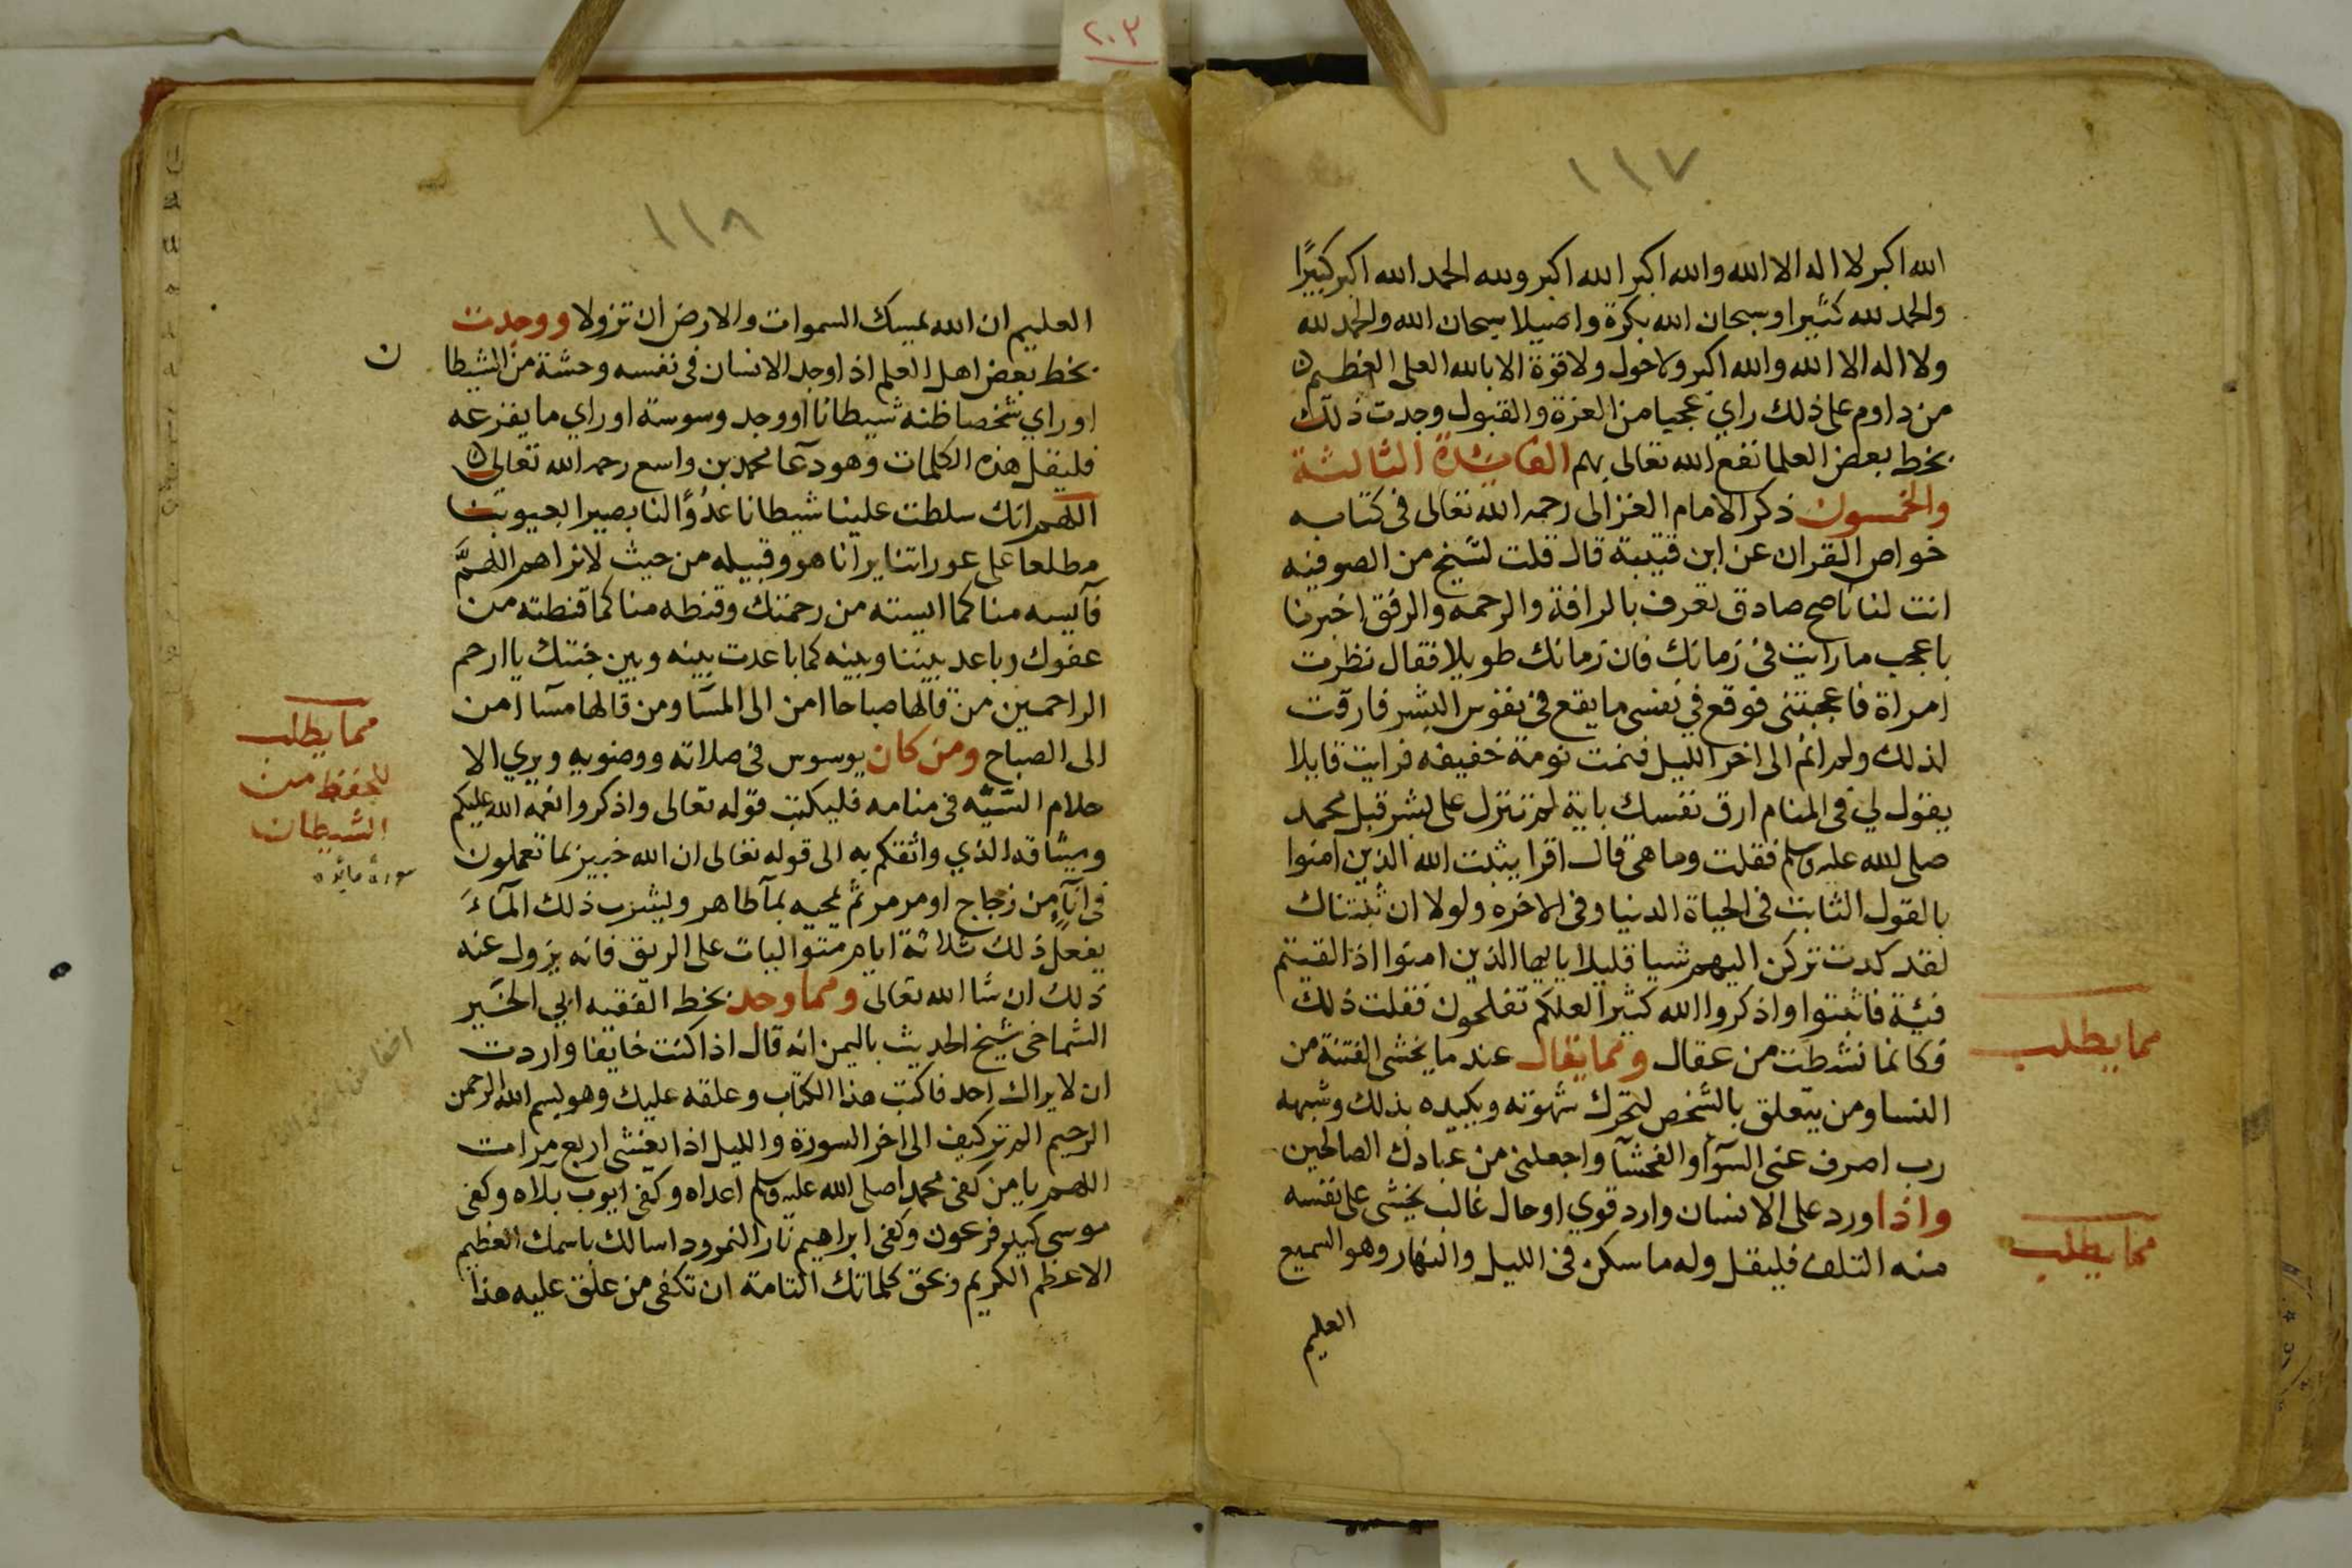 ٢٠٣
١١٧
الله اكبر لا اله الا الله والله اكبر الله اكبر ولله الحمد الله اكبر كبيرًا
والحمد لله كثيرا وسبحان الله بكرة واصيلا سبحان الله والحمد لله
ولا اله الا الله والله اكبر ولا حول ولا قوة الا بالله العلي العظيم
من داوم على ذلك راي عجبا من العزة والقبول وجدت ذلك
بخط بعض العلما نفع الله تعالى بهم الفائدة الثالثة
والخمسون ذكر الامام الغزالى رحمه الله تعالى فى كتابه
خواص القران عن ابن قتيبة قال قلت لشيخ من الصوفيه
انت لنا ناصح صادق تعرف بالرافة والرحمه والرفق اخبرنا
باعجب ما رايت فى زمانك فان زمانك طويلا فقال نظرت
امراة فاعجبتنى فوقع في نفسى ما يقع فى نفوس البشر فارقت
لذلك ولم انم الى اخر الليل فنمت نومة خفيفه فرايت قايلا
يقول لي فى المنام ارق نفسك باية لم تنزل على بشر قبل محمد
صلى الله عليه وسلم فقلت وما هى قال اقرا يثبت الله الذين امنوا
بالقول الثابت فى الحياة الدنيا وفى الاخره ولولا ان ثبتناك
لقد كدت تركن اليهم شيا قليلا يا ايها الذين امنوا اذا لقيتم
فئة فاثبتوا واذكروا الله كثيرا لعلكم تفلحون فقلت ذلك
فكانما نشطت من عقال ومما يقال عند ما يخشى الفتنة من
مما يطلب
النسا ومن يتعلق بالشخص لتحرك شهوته ويكيده بذلك وشبهه
رب اصرف عنى السوٓا والفحشآ واجعلنى من عبادك الصالحين
واذا ورد على الانسان وارد قوي او حال غالب يخشى على نفسه
مما يطلب
منه التلف فليقل وله ما سكن فى الليل والنهار وهو السميع
العليم
١١٨
العليم ان الله يمسك السموات والارض ان تزولا ووجدت
بخط بعض اهل العلم اذا وجد الانسان فى نفسه وحشة من الشيطا ن
او راي شخصا ظنه شيطانا او وجد وسوسة او راي ما يفزعه
فليقل هذه الكلمات وهو دعآ محمد بن واسع رحمه الله تعالى
اللهم انك سلطت علينا شيطانا عدُوًّا لنا بصيرا بعيوبنا
مطلعا على عوراتنا يرانا هو وقبيله من حيث لا نراهم اللهمَّ
فآيسه منا كما ايسته من رحمتك وقنطه منا كما قنطته من
عفوك وباعد بيننا وبينه كما باعدت بينه وبين جنتك يا ارحم
الراحمين من قالها صباحا امن الى المسآ ومن قالها مسآ امن
مما يطلب
للحفظ من
الشيطان
سورة مائده
الى الصباح ومن كان يوسوس فى صلاته ووضويه ويري الا
حلام السَّيِّه فى منامه فليكتب قوله تعالى واذكروا نعمة الله عليكم
وميثاقه الذي واثقكم به الى قوله تعالى ان الله خبير بما تعملون
فى انآءٍ من زجاج او مرمر ثم يمحيه بمآ طاهر ويشرب ذلك المآءَ
يفعل ذلك ثلاثة ايام متواليات على الريق فانه يزول عنه
ذلك ان شا الله تعالى ومما وجد بخط الفقيه ابي الخير
الشماخى شيخ الحديث باليمن انه قال اذا كنت خايفا واردت
ان لا يراك احد فاكتب هذا الكتاب وعلقه عليك وهو بسم الله الرحمن
الرحيم الم تر كيف الى اخر السورة والليل اذا يغشى اربع مرات
اللهم يا من كفى محمدا صلى الله عليه وسلم اعداه وكفى ايوب بلاه وكفى
موسى كيد فرعون وكفى ابراهيم نار النمرود اسالك باسمك العظيم
الاعظم الكريم وبحق كلماتك التامة ان تكفى من علق عليه هذا